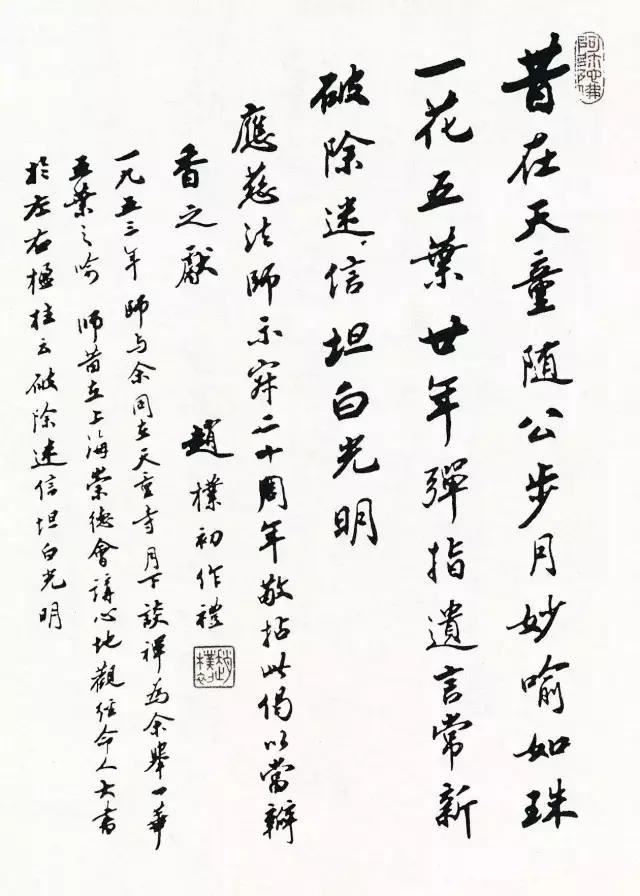 阿彌陀佛
昔在天童随公步月妙喻如珠
一花五葉廿年彈指遺言常新
破除迷信坦白光明
應慈法師示寂二十周年敬拈此偈以當瓣
香之獻
趙樸初作禮
趙樸初
一九五三年師与余同在天童寺月下談禅為余舉一華
五葉之喻師昔在上海崇德會講心地觀經命人大書
於左右楹柱云破除迷信坦白光明